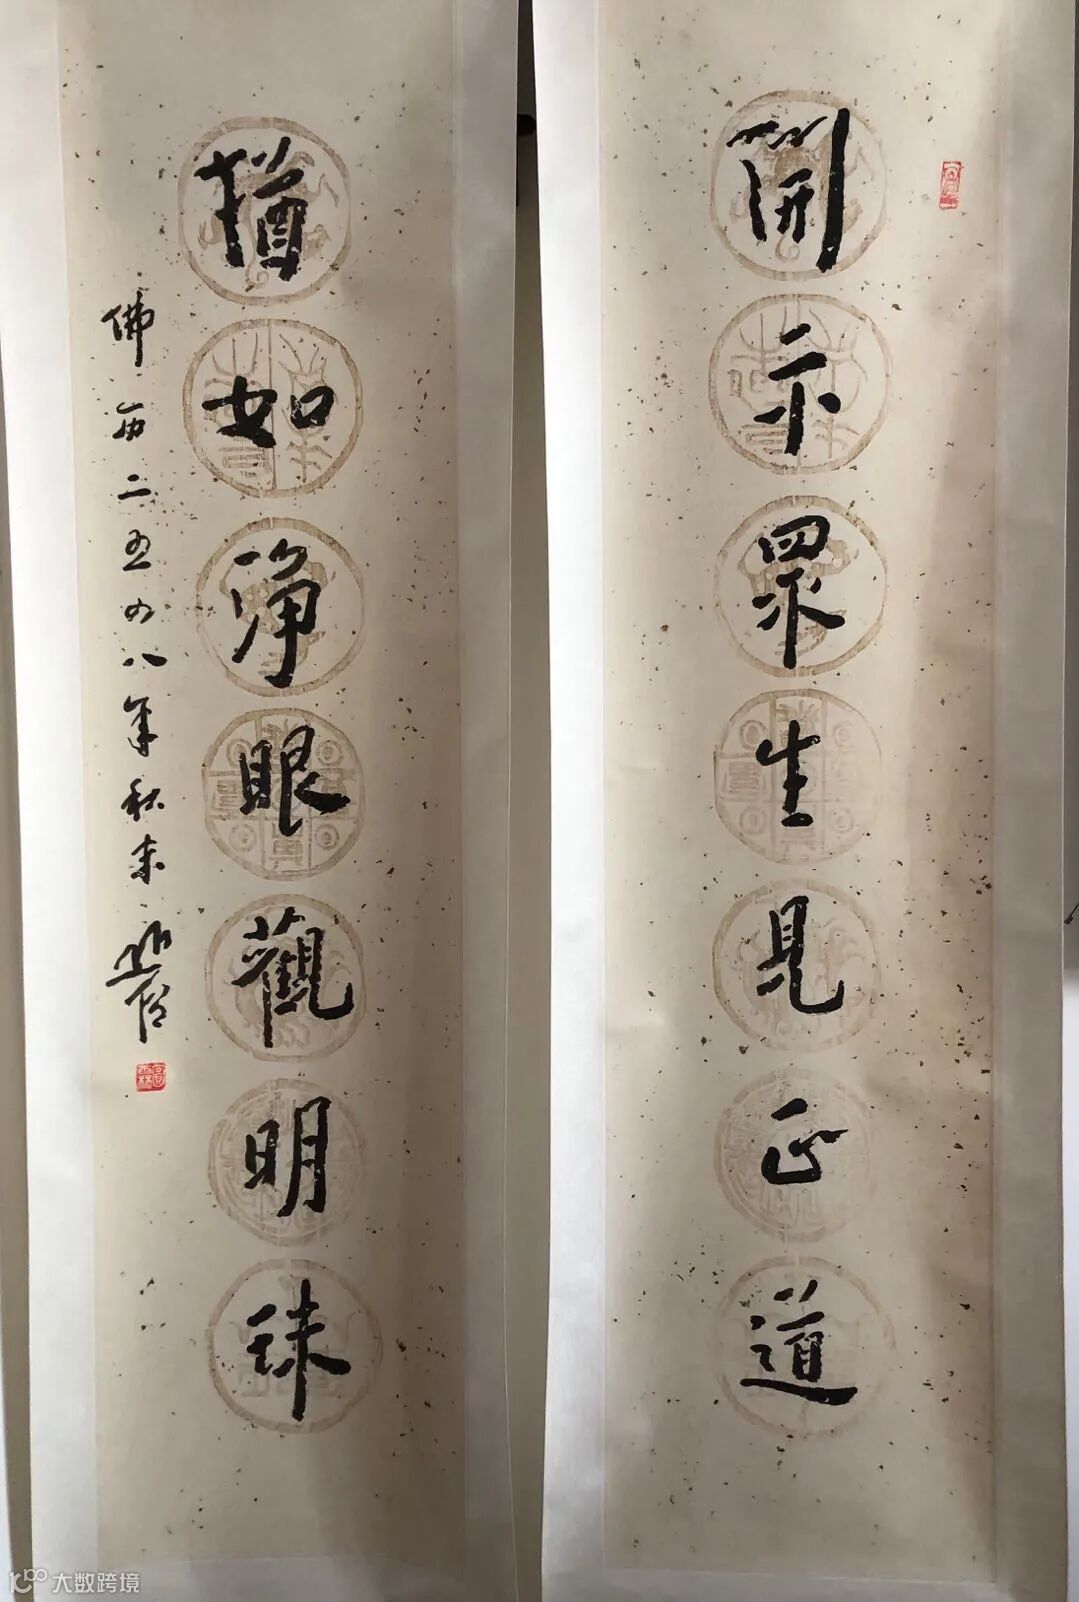 開示眾生見正道
猶如淨眼觀明珠
佛曆二五五八年秋末
大数跨境